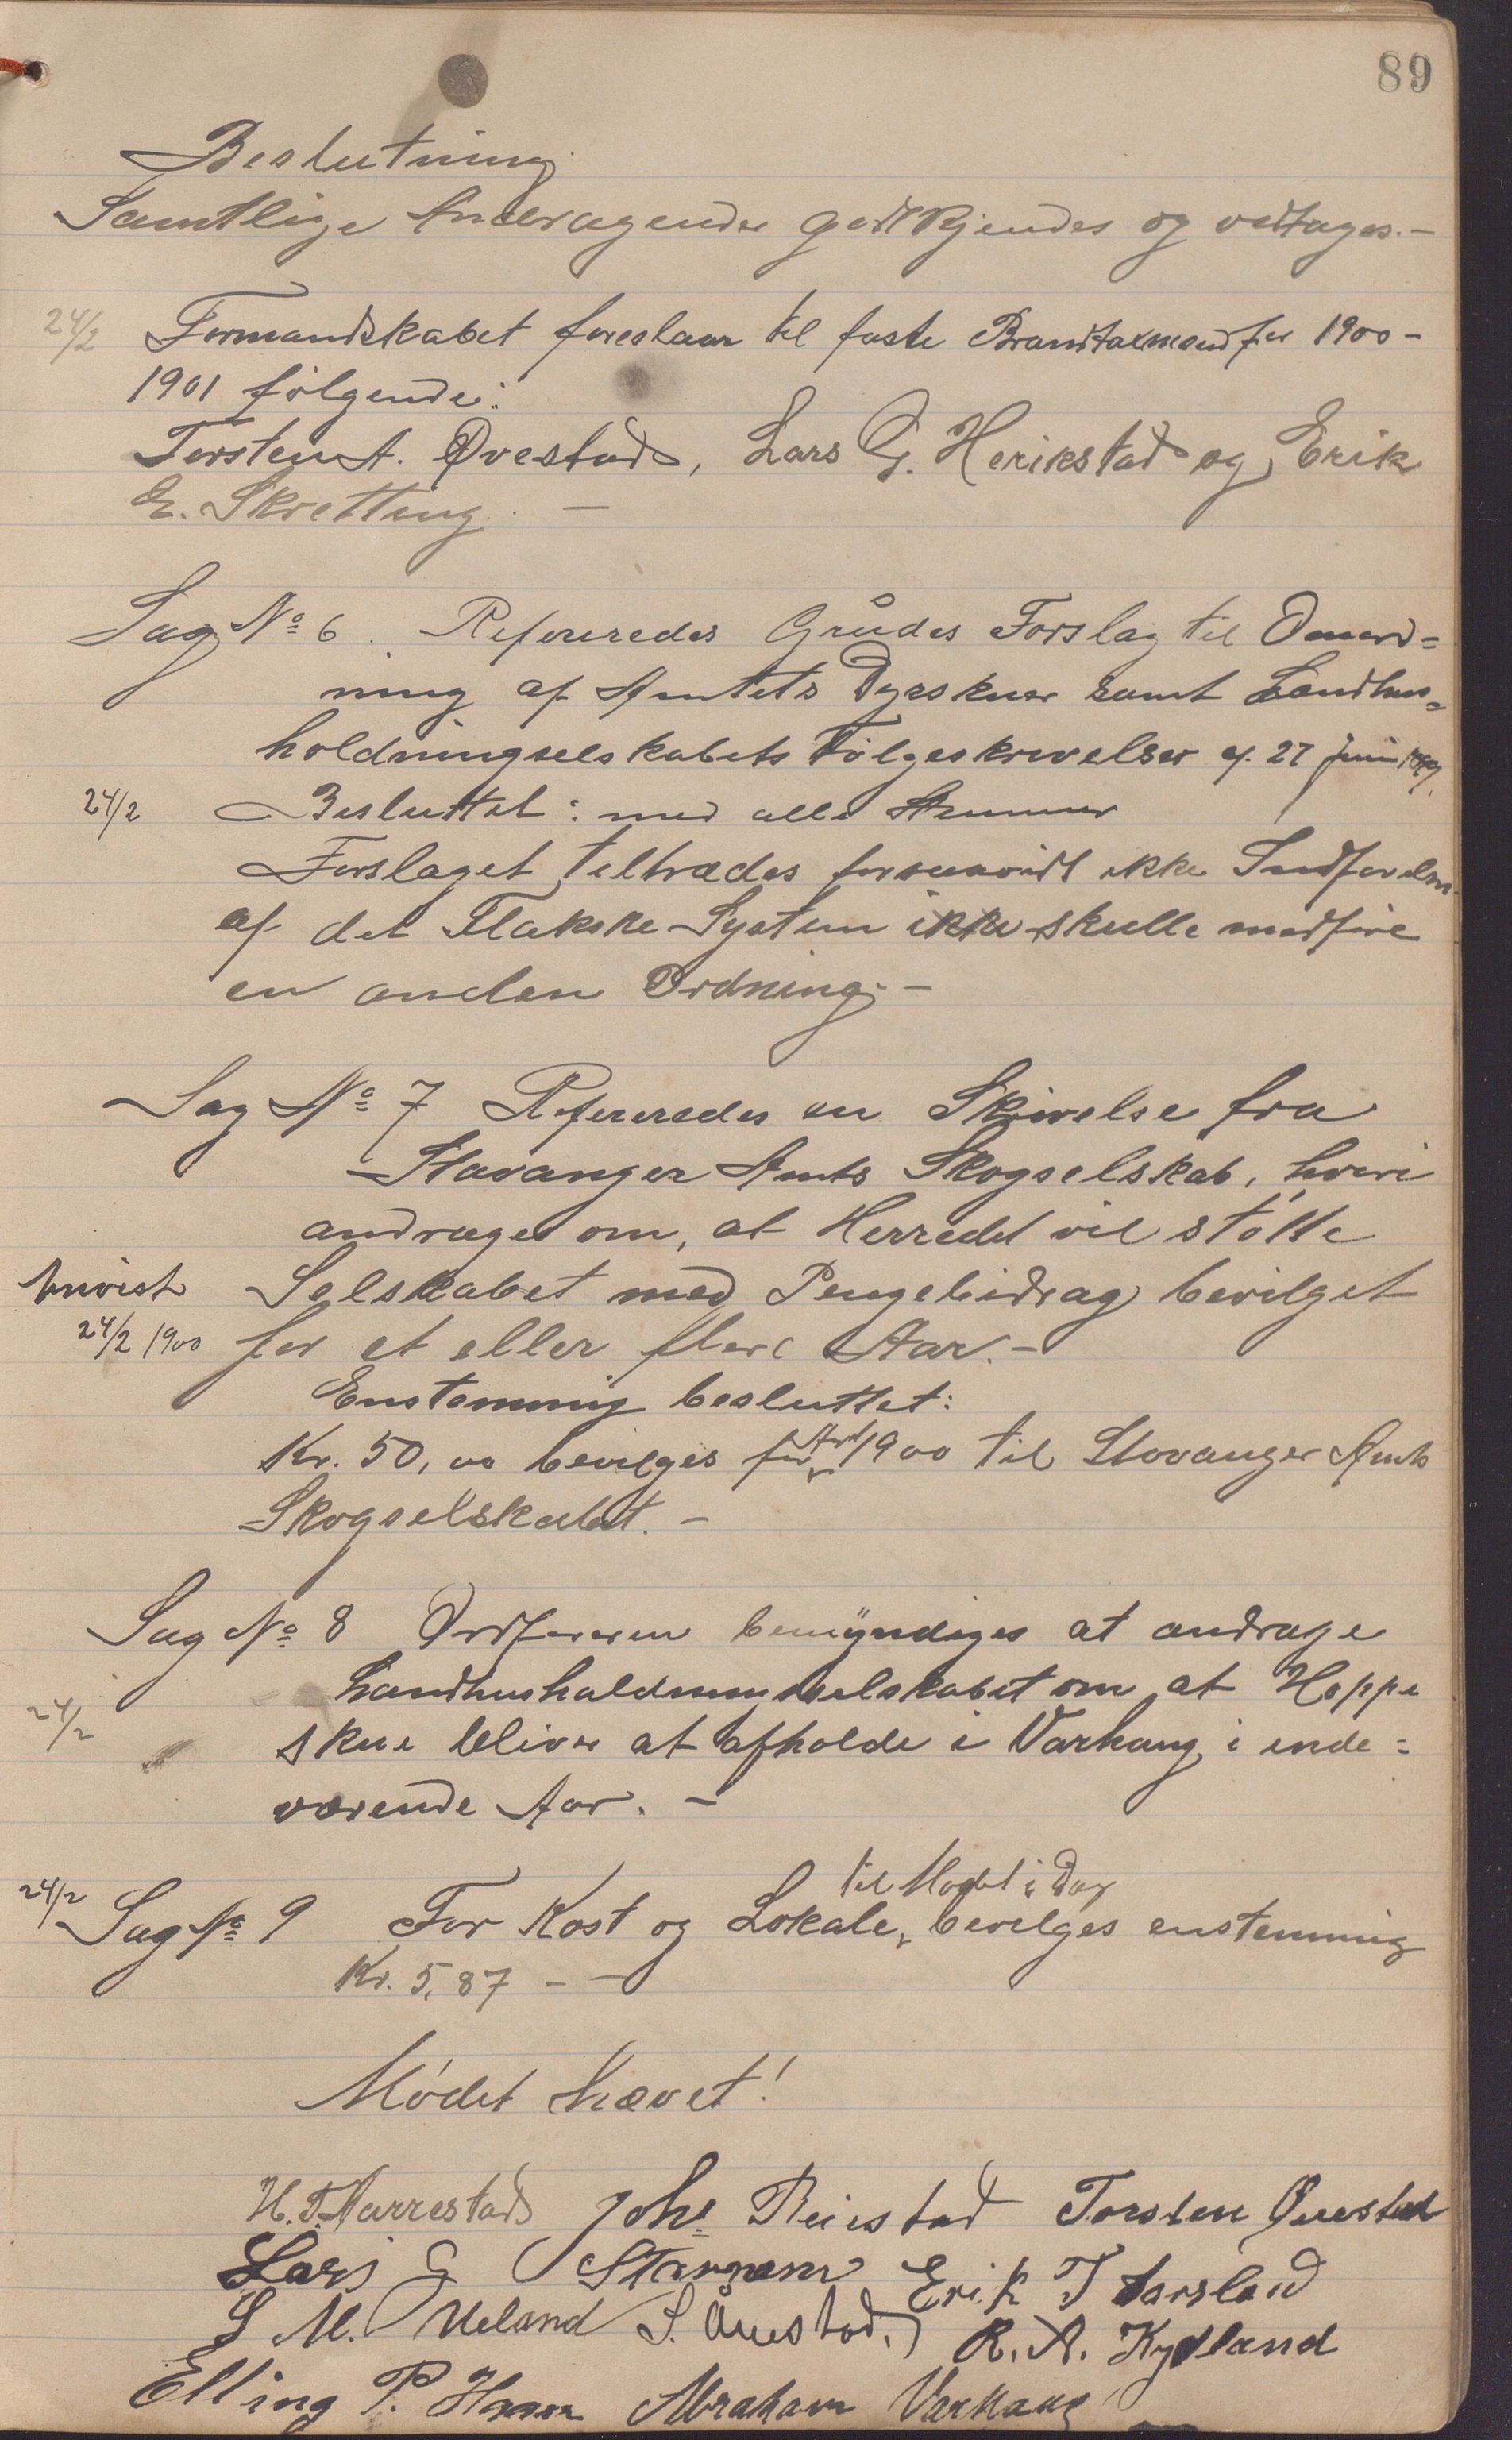 89
Beslutning
Samtlige Andragender godtkjendes og vedtages.-
24/2 Formandskabet foreslaar til faste Brandtaxmænd for 1900-
1901 følgende:
Torsten A. Øvestad, Lars G. Herikstad og Erik
E. Skretting. -
Sag No 6. Refereredes Grudes Forslag til Omord=
ning af Amtets Dyrskuer samt Landhus=
holdningselskabets Følgeskrivelser af 27 Juni
24/2 Besluttet: med alle Stemmer
Forslaget tiltrædes forsaavidt ikke Indførelsen
af det Flakske System ikke skulle medføre
en anden Ordning.-
Sag No 7 Refereredes en Skrivelse fra
Stavanger Amts Skogselskab, hvori
andrages om, at Herredet vil støtte
Anvist Selskabet med Pengebidrag bevilget
24/2 1900 for et eller flere Aar.-
Enstemmig besluttet:
Kr. 50,00 bevilges for Aaret 1900 til Stavanger Amts
Skogselskabet.-
Sag No 8 Ordføreren bemyndiges at andrage
24/2 Landhusholdningsselskabet om at Hoppe
skue bliver at afholde i Varhaug i inde=
værende Aar.-
til Mødet i Dag
24/2 Sag No 9 For Kost og Lokale, bevilges enstemmig
Kr. 5,87 - -
Mødet hævet!
H. T. Aarrestad Johs Reiestad Torsten Øvestad
Lars G Stavnem Erik T Aarsland
S M. Ueland S. Ånestad. R. A. Kydland
Elling P. Haar Abraham Varhaug